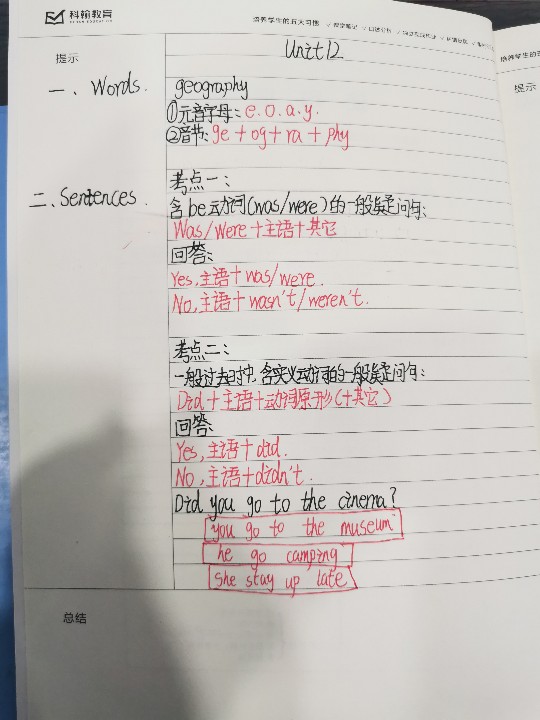 科翰教育
培养学生的五大习惯
提示
Unit 12
提示
一、Words.
geography
①元音字母: e.o.a.y.
②音节: ge + og + ra + phy
二、Sentences.
考点一:
含be动词(was/were)的一般疑问句:
Was/Were+主语+其它
回答:
Yes,主语+was/were.
No,主语+wasn't/weren't.
考点二:
一般过去时中,含实义动词的一般疑问句:
Did+主语+动词原形(+其它)
回答:
Yes,主语+did.
No,主语+didn't.
Did you go to the cinema?
you go to the museum
he go camping
she stay up late
总结